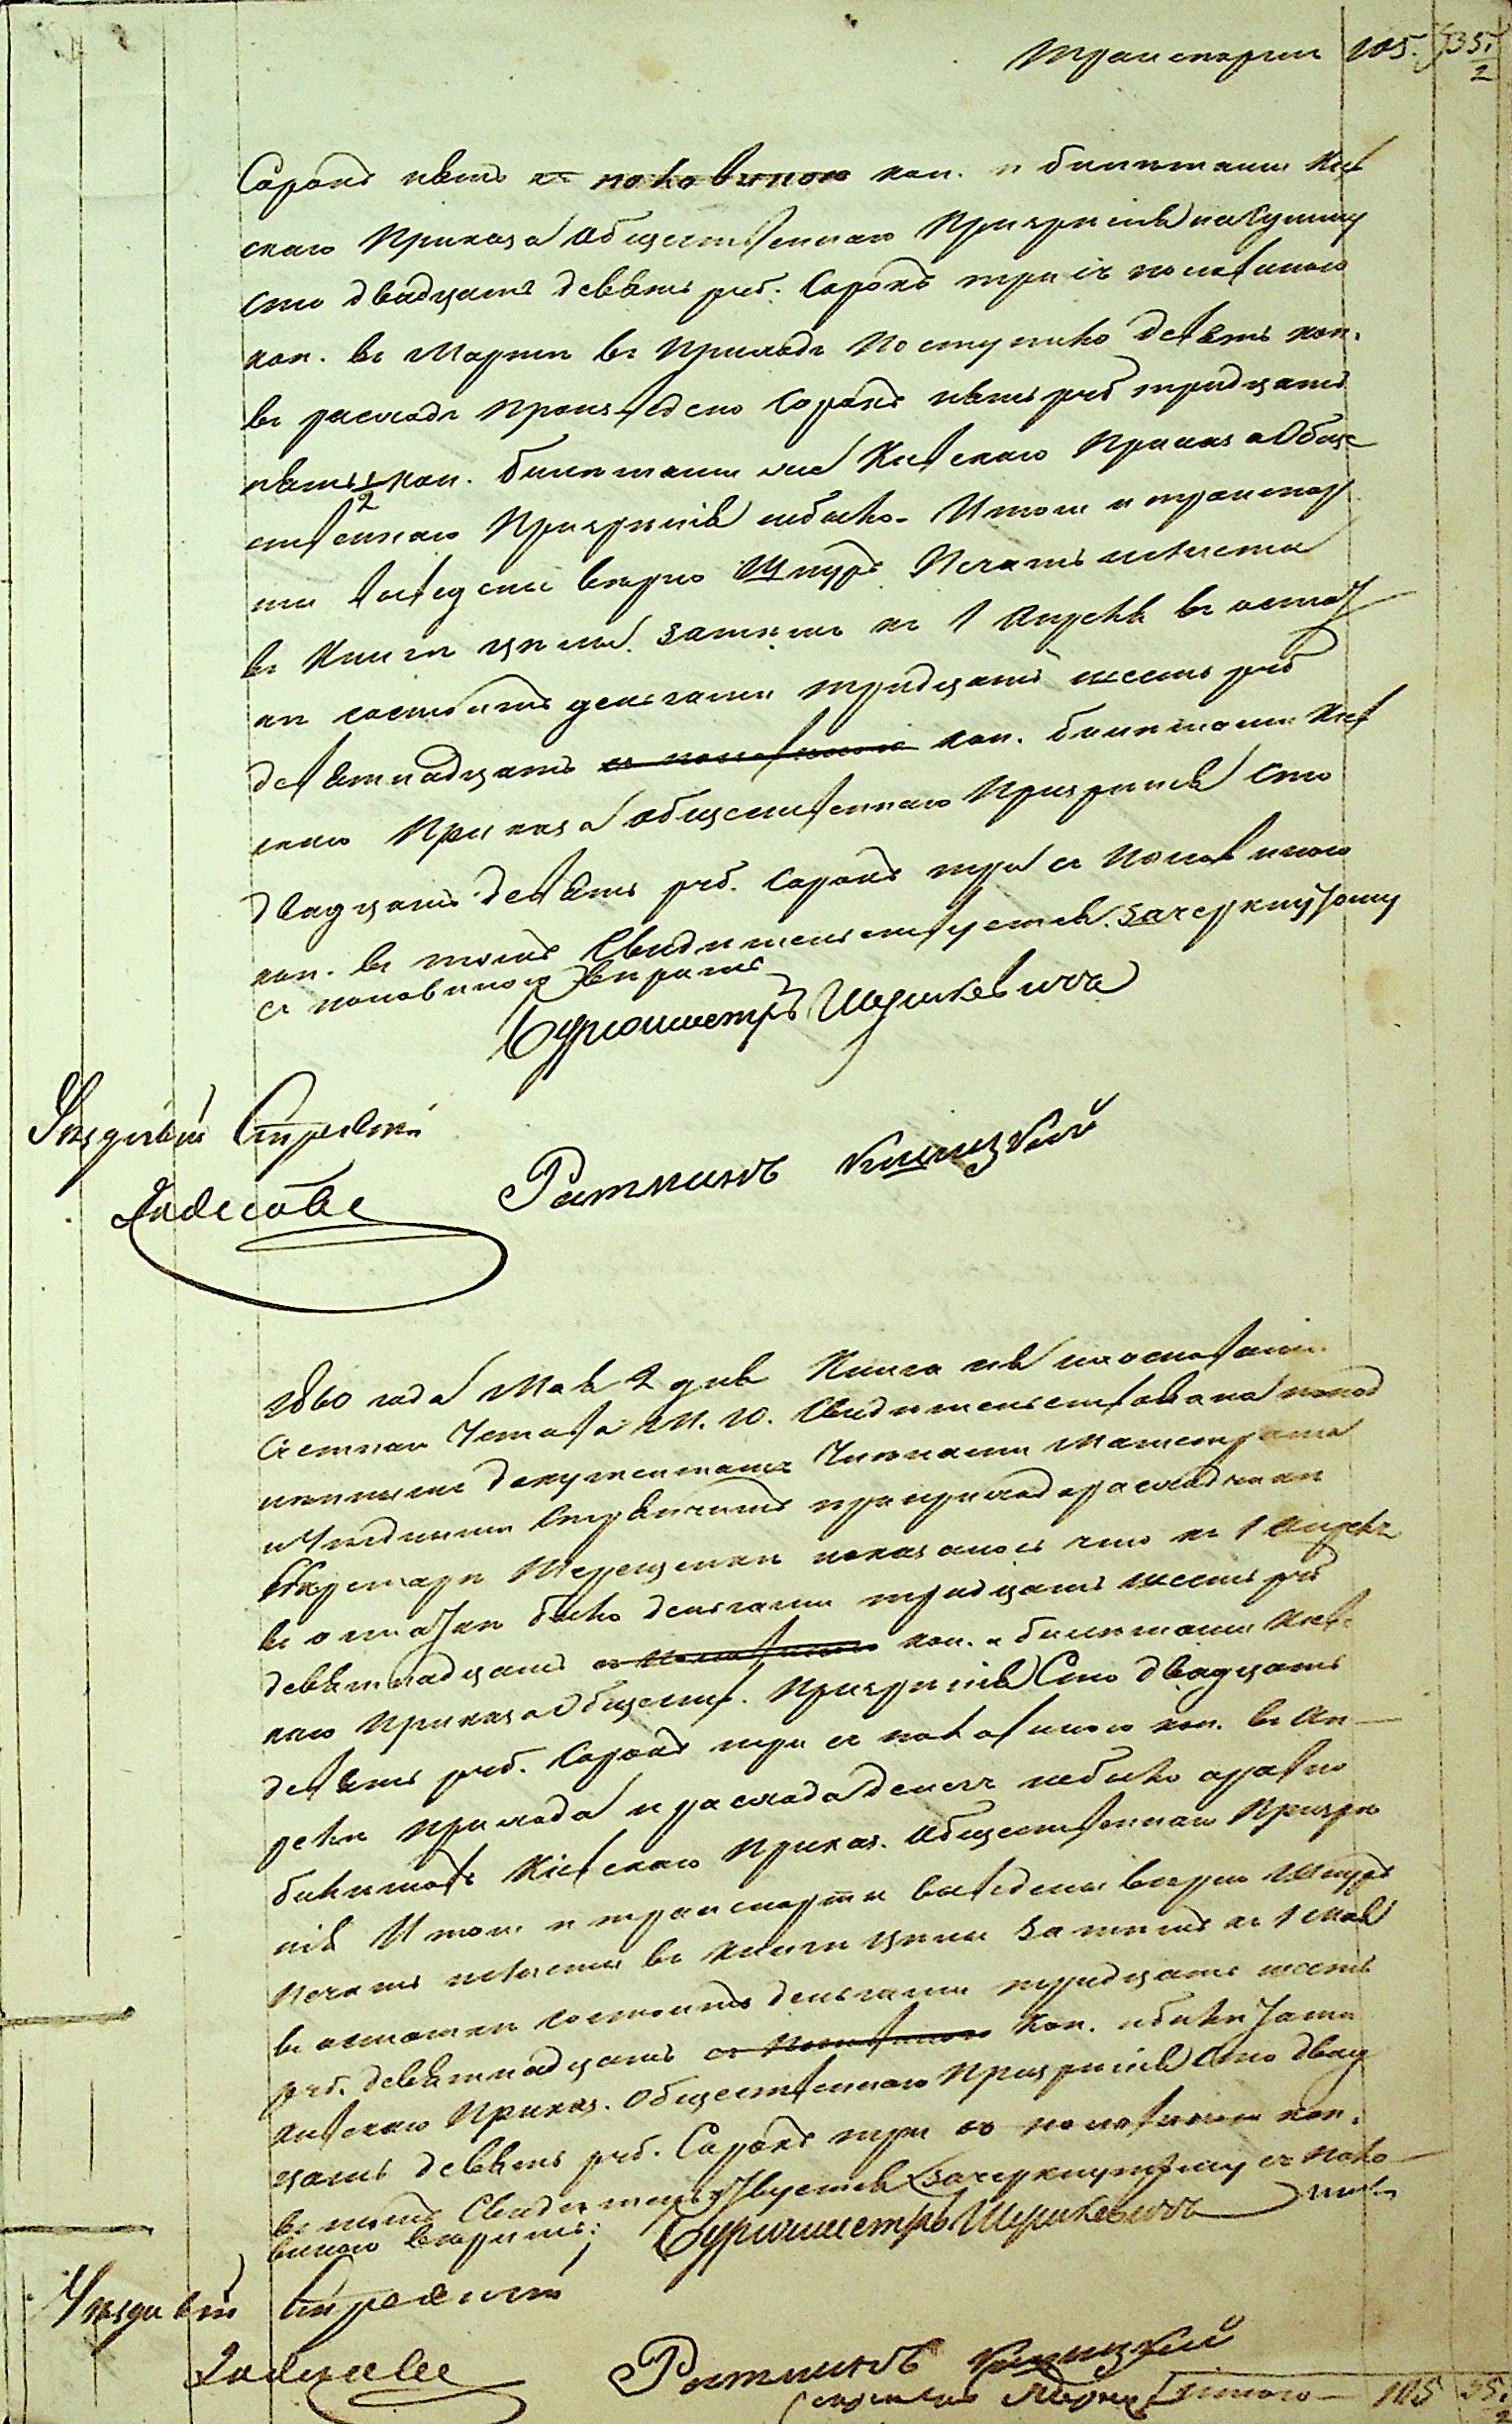 Транспортъ 105. 35 1/2
Сорокъ пять съ половиною коп. и билетами Кіев
скаго Приказа Общественнаго Призрѣнія на сумму
сто двадцать девять руб. Сорокъ три съ половиною
коп. въ Мартѣ въ Приходѣ Поступило девять коп.
въ расходъ Произведено Сорокъ пять руб тридцать
пять 1/2 коп. билетами же Кіевскаго Приказа Обще
ственнаго Призрѣнія небыло. Итоги и транспор
ты выведены вѣрно Шнуръ Печать и листы
въ Книгѣ цѣлы. Затемъ къ 1 Апрѣля въ остат
кѣ состоитъ деньгами тридцать шесть руб
девятнадцать съ половиною коп. билетами Кіев
скаго Приказа Общественнаго Призрѣнія Сто
двадцать девять руб. Сорокъ три съ половиною
коп. въ томъ Свидѣтельствуется. Зачеркнутому
съ половиною вѣрить
Бургомистръ
Уѣздный Стряпчій
Ратманъ
1860 года Мая 2 дня Книга сія на основаніи
Счетнаго Устава М. Ю. Свидѣтельствована по под
линнымъ документамъ Членами Магистрата
и Уѣзднымъ Стряпчимъ при приходорасходчикѣ
Секретарѣ показалось что къ 1 Апрѣля
въ остаткѣ было деньгами тридцать шесть руб
девятнадцать съ половиною коп. и билетами Кіевс
каго Приказа Обществ. Призрѣнія Сто двадцать
девять руб. Сорокъ три съ половиною коп. въ Ап
релѣ прихода и расхода денегъ небыло равно
билетовъ Кіевскаго Приказ. Общественнаго Призрѣ
нія Итоги и транспорты выведены вѣрно Шнуръ
Печать и листы въ Книгѣ цѣлы Затемъ къ 1 Мая
въ остаткѣ состоитъ деньгами тридцать шесть
руб. девятнадцать съ половиною коп. и билетами
Кіевскаго Приказ. Общественнаго Призрѣнія Сто двад
цать девять руб. Сорокъ три съ половиною коп.
въ томъ Свидѣтельствуется Зачеркнутому съ поло
виною вѣрить. Бургомистръ
Уѣздный Стряпчій
Ратманъ
Итого 105 35 1/2